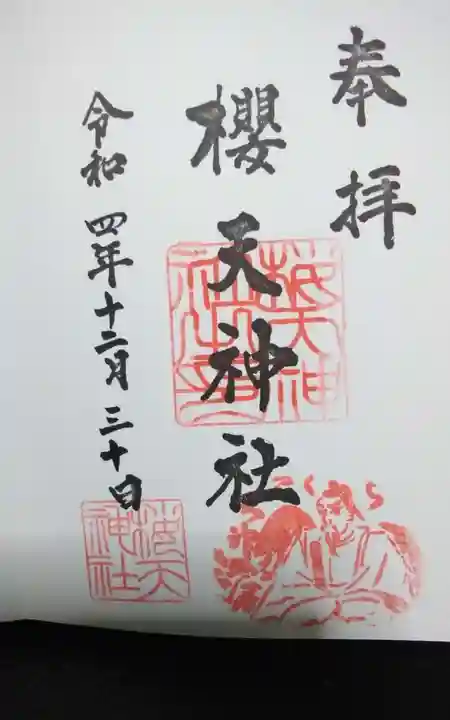 奉拝
櫻天神社
令和四年十二月三十日
さくら
櫻天
神社